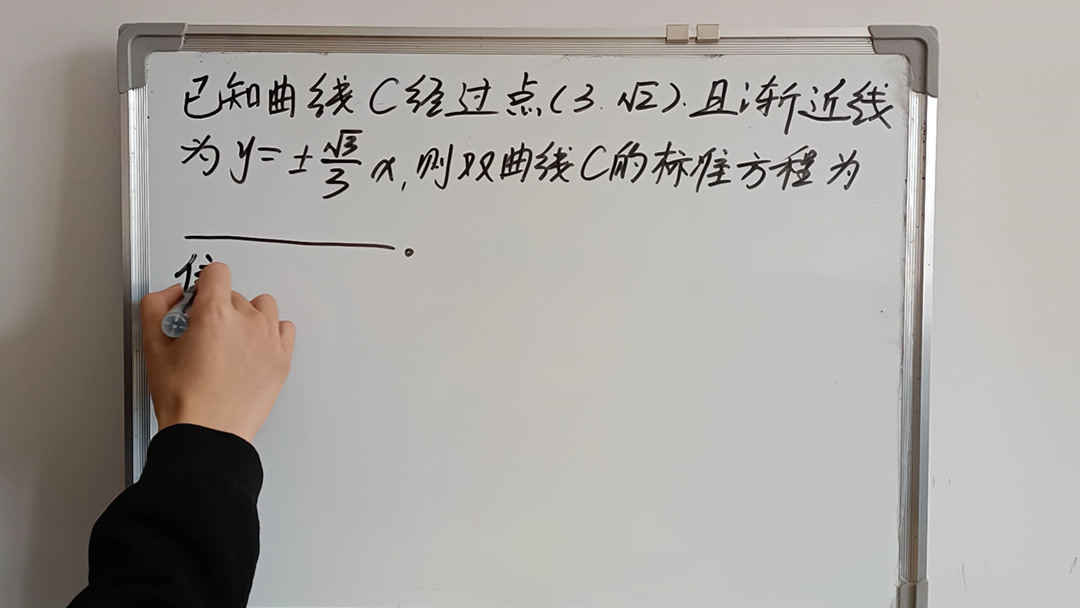 已知曲线C经过点(3.√2).且渐近线
为y=±√3/3 x,则双曲线C的标准方程为
________。